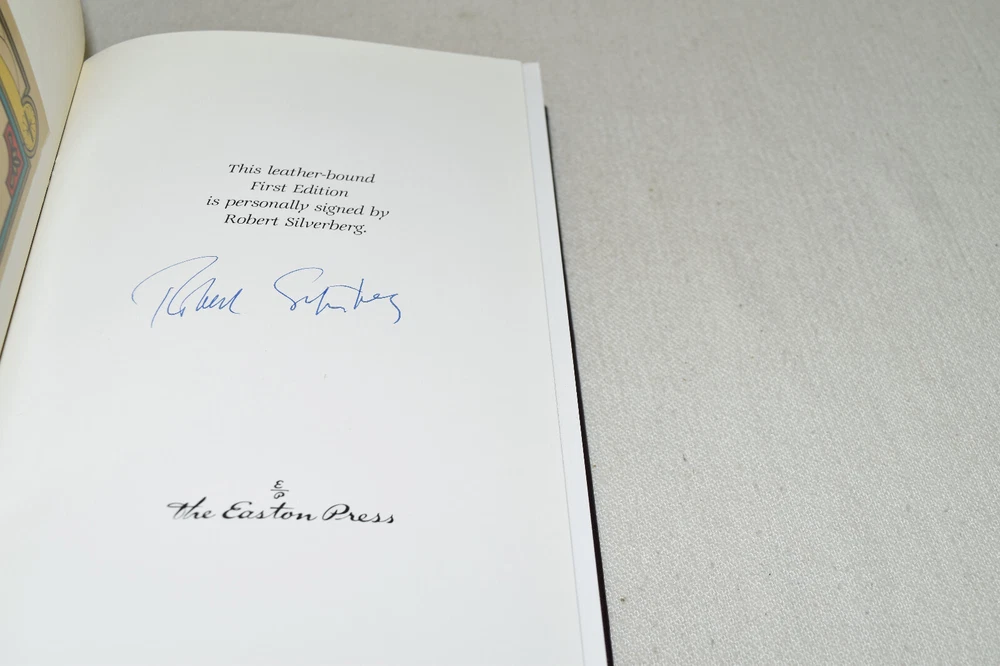 This leather-bound
First Edition
is personally signed by
Robert Silverberg.
Robert Silverberg
E
P
the Easton Press